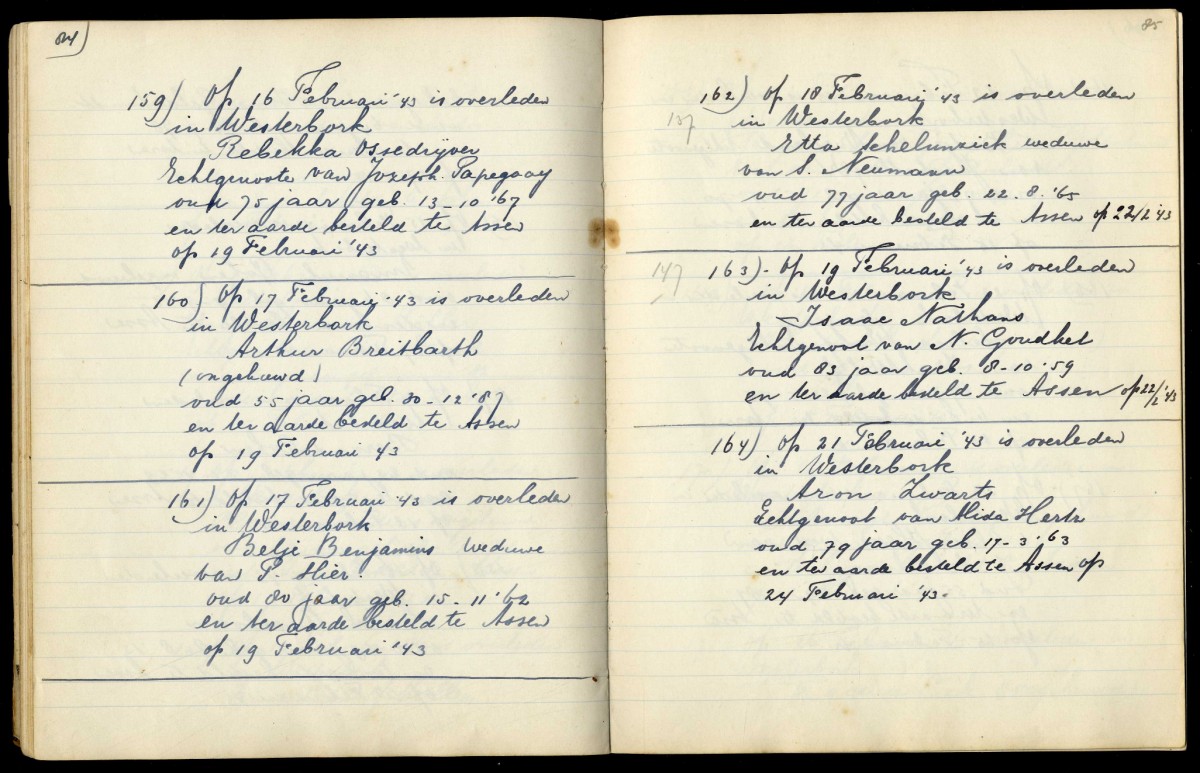 84)
159) Op 16 Februari '43 is overleden
in Westerbork
Rebekka Ossedrijver
Echtgenoote van Jozeph. Papegaay
oud 75 jaar geb. 13-10 '67
en ter aarde besteld te Assen
op 19 Februari '43
160) Op 17 Februari '43 is overleden
in Westerbork
Arthur Breitbarth
(ongehuwd)
oud 55 jaar geb. 30-12 '87
en ter aarde besteld te Assen
op 19 Februari '43
161) Op 17 Februari '43 is overleden
in Westerbork
Betje Benjamins weduwe
van P. Hier.
oud 80 jaar geb. 15-11 '62
en ter aarde besteld te Assen
op 19 Februari '43
85
162) Op 18 Februarij '43 is overleden
137 in Westerbork
Etta weduwe
van S. Neumann
oud 77 jaar geb. 22.8.'65
en ter aarde besteld te Assen op 22/2 '43
147 163). Op 19 Februari '43 is overleden
in Westerbork
Isaac Nathans
Echtgenoot van N. Goudket
oud 83 jaar geb. 8-10 '59
en ter aarde besteld te Assen op 22/2 '43
164) Op 21 Februari '43 is overleden
in Westerbork
Aron Zwarts
Echtgenoot van Mida Hertz
oud 79 jaar geb. 17-3 '63
en ter aarde besteld te Assen op
24 Februari '43.